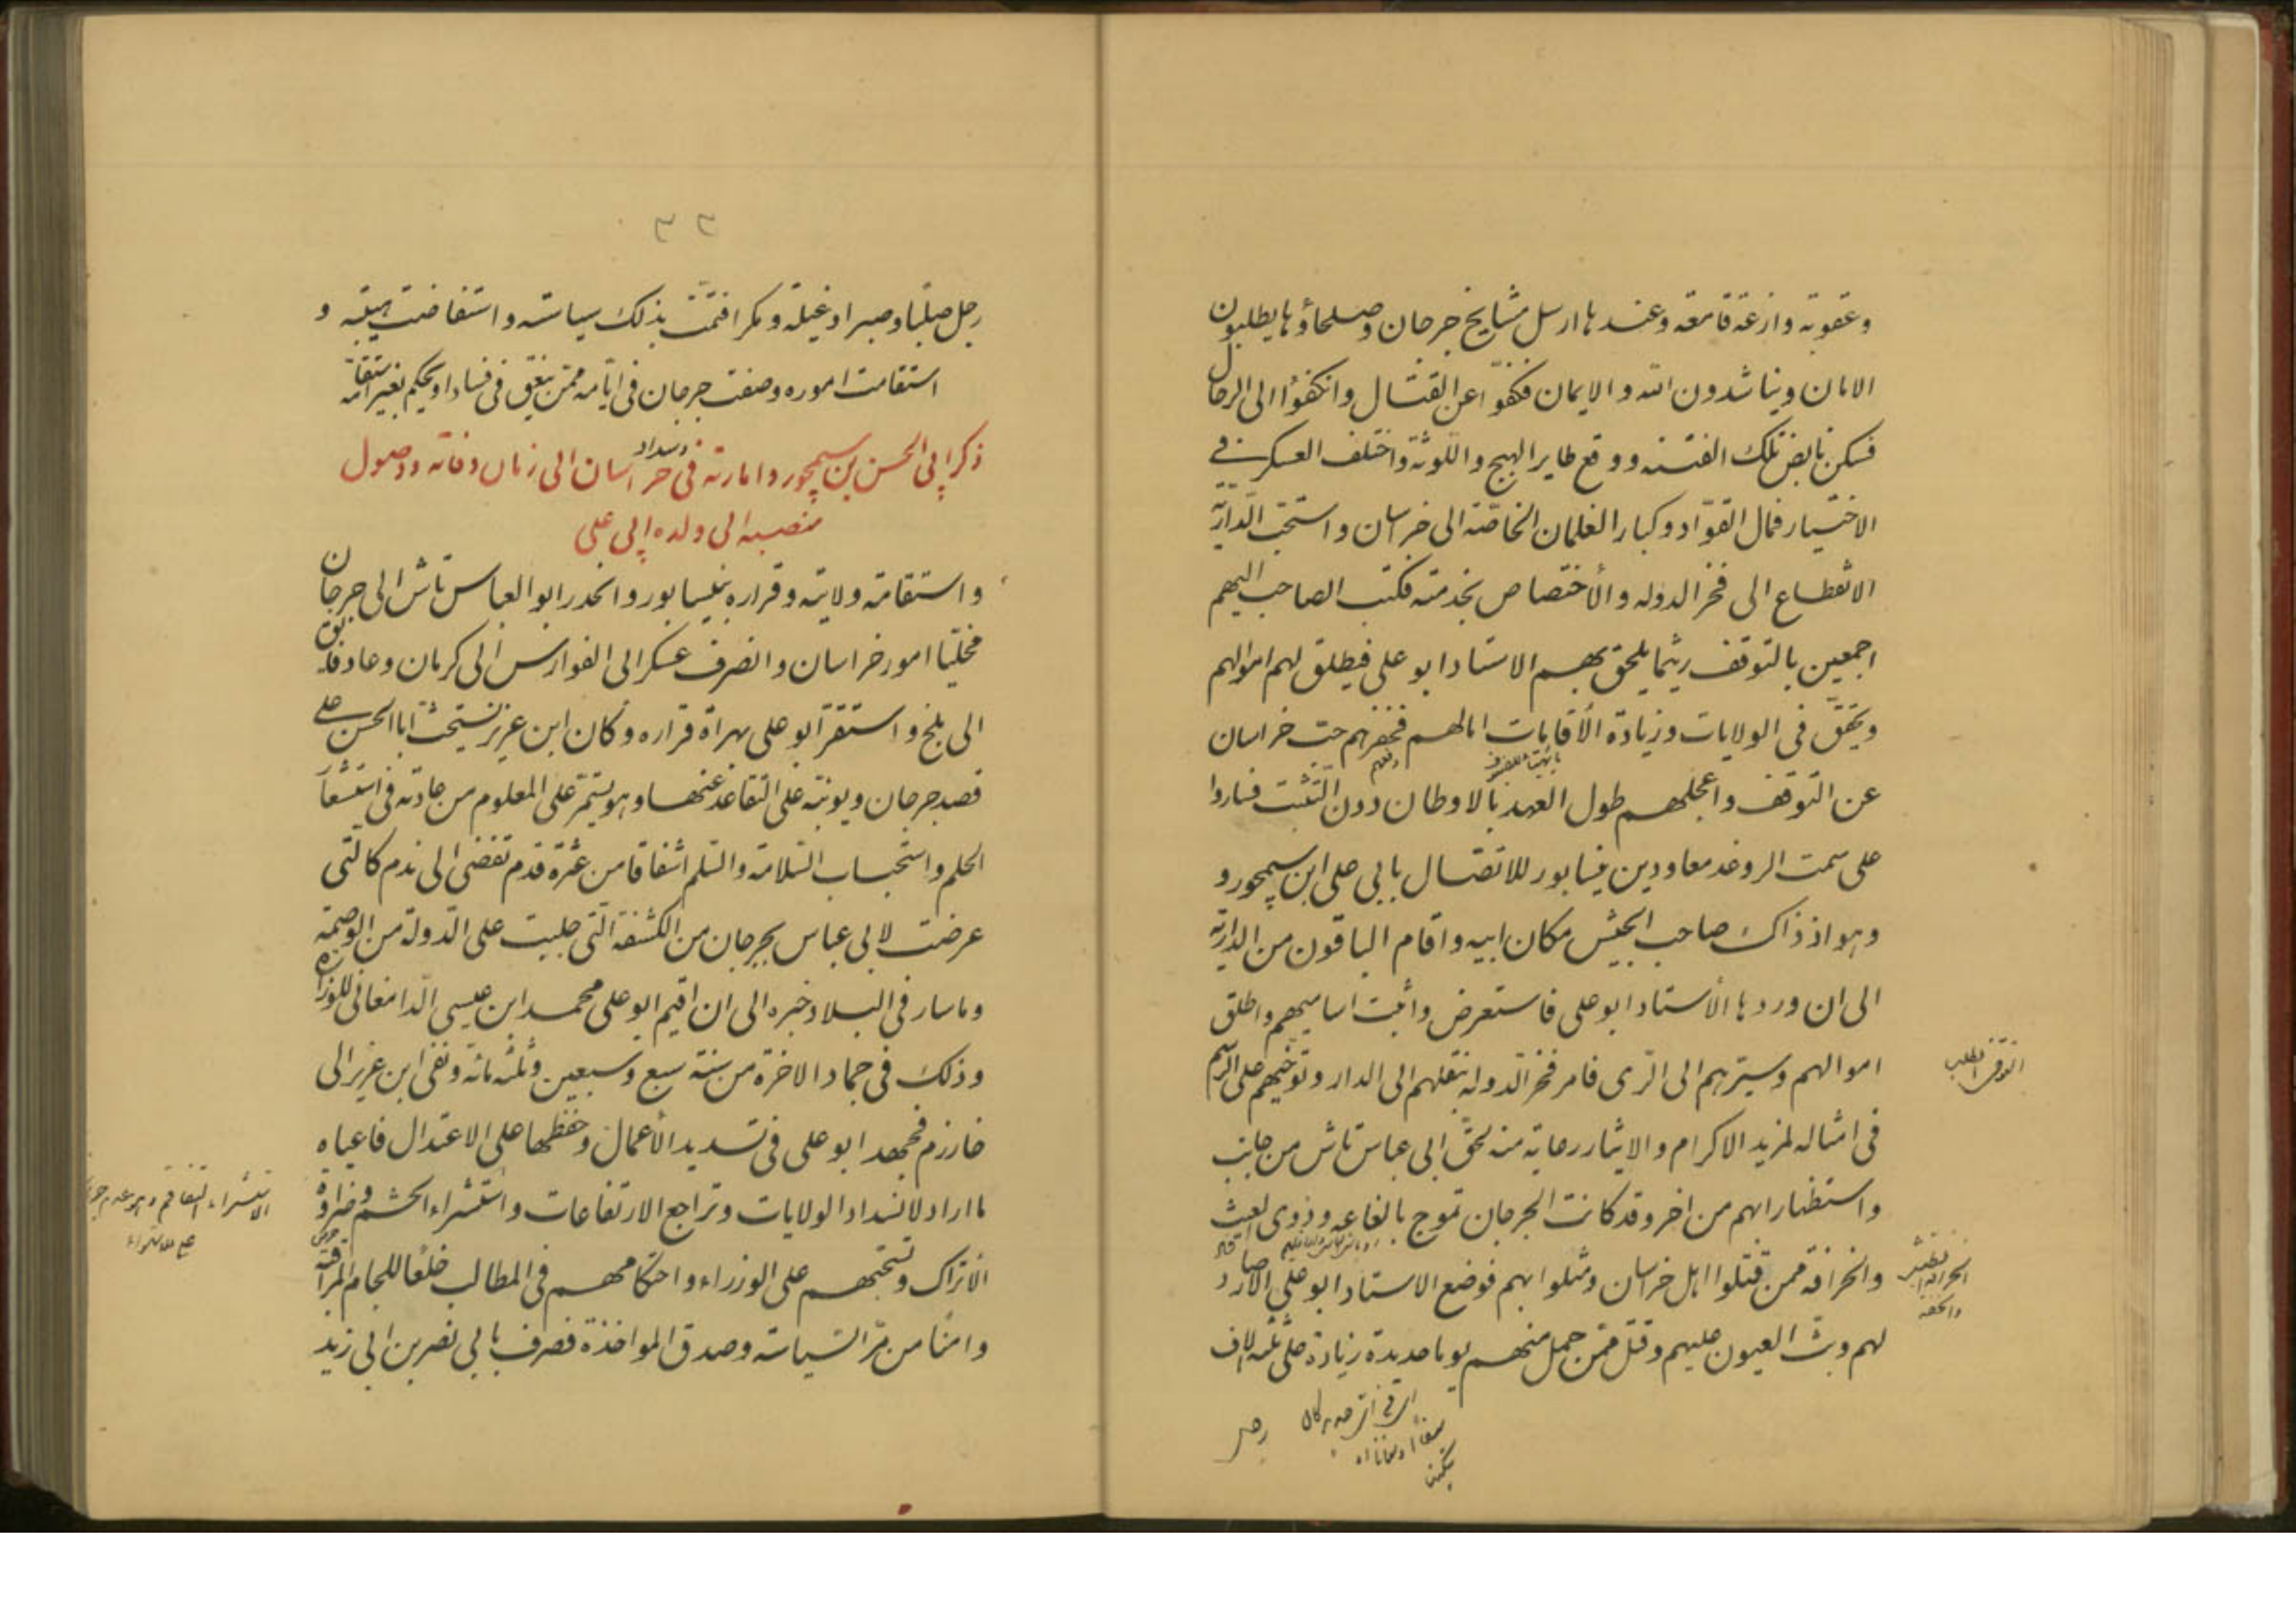 وعقوبة وازعة قامعة وعندها ارسل مشايخ جرجان وصلحاؤها يطلبون
الامان ويناشدون الله والايمان فكفوا عن القتال وانكفؤا الى الرحال
فسكن نابض تلك الفتنه ووقع طاير الهيج واللوثة واختلف العسكر في
الاختيار فمال القواد وكبار الغلمان الخاصة الى خراسان واستحب الدارية
الانقطاع الى فخر الدوله والأختصاص بخدمته فكتب الصاحب اليهم
اجمعين بالتوقف ريثما يلحق بهم الاستاد ابو على فيطلق لهم اموالهم
فى الولايات وزيادة الأقامات لهم فحفزهم حب خراسان
عن التوقف واعجلهم طول العهد بالاوطان دون التثبت فساروا
على سمت معاودين نيسابور للاتصال بابى على ابن سيمجور و
وهو اذ ذاك صاحب الجيش مكان ابيه واقام الباقون من الدارية
الى ان وردها الأستاد ابو على فاستعرض واثبت اساميهم واطلق
اموالهم وسيرهم الى الرى فامر فخر الدوله بنقلهم الى الدار وتوخيهم على الرسم
فى امثاله لمزيد الاكرام والايثار رعاية منه لحق ابى عباس تاش من جانب
واستظهارا بهم من اخر وقد كانت الجرجان تموج بالغاعه وذوى العيث
والخرافة ممن قتلوا اهل خراسان ومثلوا بهم فوضع الاستاد ابو على الارصاد
لهم وبث العيون عليهم وقتل ممن جمل منهم يوما حديدة زيادة على ثلثه الاف
رجل
٣٣
رجل صلبا وصبرا وغيلة ومكرا فتمت بذلك سياسته واستفاضت هيبته و
استقامت اموره وصفت جرجان فى ايامه ممن ينعق فى فساد او يحكم بغير استقامة
ذكر ابى الحسن بن سيمجور وامارته فى خراسان الى زمان وفاته ووصول
منصبه الى ولده ابى على
واستقامة ولايته وقراره بنيسابور وانحدر ابو العباس تاش الى جرجان
مخليا امور خراسان وانصرف عسكر ابى الفوارس الى كرمان وعاد فايق
الى بلخ واستقر ابو على بهراة قراره وكان ابن عزير يستحث ابا الحسن على
قصد جرجان ويونبه على التقاعد عنها وهو يستمر على المعلوم من عادته فى استشعار
الحلم واستحباب السلامة والسلم اشفاقا من عثرة قدم تفضى الى ندم كالتى
عرضت لابى عباس بجرجان من الكشفة التى جلبت على الدولة من الوصمة
وما سار فى البلاد خبره الى ان اقيم ابو على محمد ابن عيسى الدامغانى للوزارة
وذلك فى جماد الاخرة من سنة سبع وسبعين وثلثمائة ونفى ابن عزير الى
خارزم فجهد ابو على فى تسديد الأعمال وحفظها على الاعتدال فاعياه
ما اراد لانسداد الولايات وتراجع الارتفاعات واستشراء الحشم وضراوة
الاتراك وتسحبهم على الوزراء واحتكامهم فى المطالب خلعا للجام المراقبة
وامنا من مر السياسة وصدق المواخذة فصرف بابى نصر بن ابى زيد